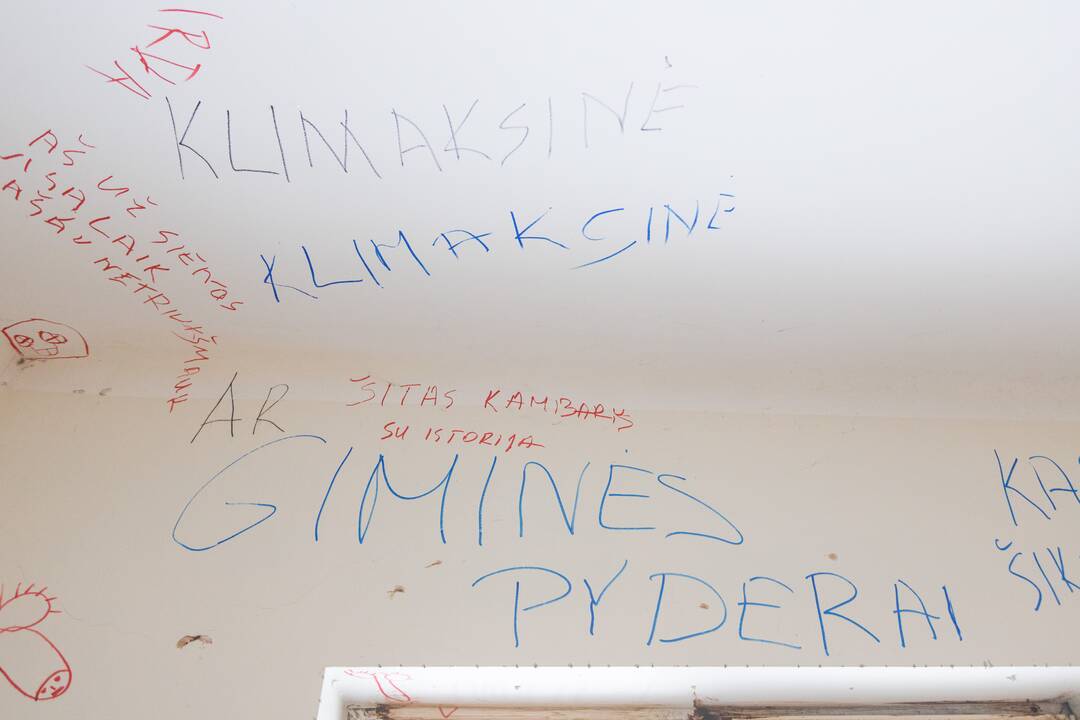 IRVA
KLIMAKSINĖ
KLIMAKSINĖ
AŠ UŽ SIENOS
VISĄ LAIK
AIŠKU NETRIUKŠMAUK
AR
ŠITAS KAMBARYS
SU ISTORIJA
GIMINĖS
PYDERAI
KA
ŠIK